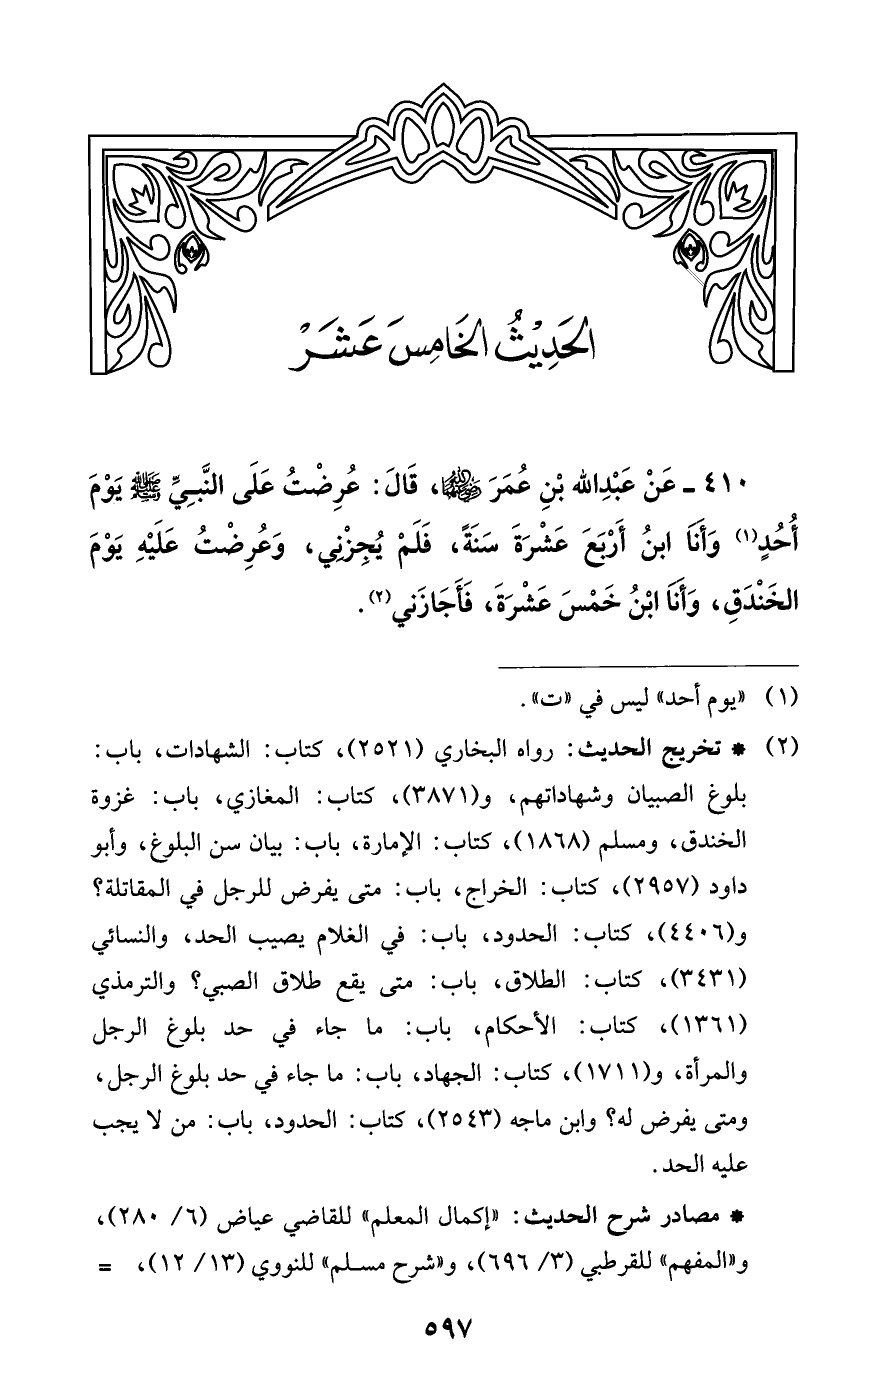 الحَدِيْثُ الخَامِسَ عَشَرَ
٤١٠ ـ عَنْ عَبْدِالله بْنِ عُمَرَ ﵄، قَالَ: عُرِضْتُ عَلَى النَّبِيِّ ﷺ يَوْمَ
أُحُدٍ(١) وَأَنَا ابنُ أَرْبَعَ عَشْرَةَ سَنَةً، فَلَمْ يُجِزْنِي، وَعُرِضْتُ عَلَيْهِ يَوْمَ
الخَنْدَقِ، وَأَنَا ابْنُ خَمْسَ عَشْرَةَ، فَأَجَازَني(٢).
(١) «يوم أحد» ليس في «ت».
(٢) * تخريج الحديث: رواه البخاري (٢٥٢١)، كتاب: الشهادات، باب:
بلوغ الصبيان وشهاداتهم، و(٣٨٧١)، كتاب: المغازي، باب: غزوة
الخندق، ومسلم (١٨٦٨)، كتاب: الإمارة، باب: بيان سن البلوغ، وأبو
داود (٢٩٥٧)، كتاب: الخراج، باب: متى يفرض للرجل في المقاتلة؟
و(٤٤٠٦)، كتاب: الحدود، باب: في الغلام يصيب الحد، والنسائي
(٣٤٣١)، كتاب: الطلاق، باب: متى يقع طلاق الصبي؟ والترمذي
(١٣٦١)، كتاب: الأحكام، باب: ما جاء في حد بلوغ الرجل
والمرأة، و(١٧١١)، كتاب: الجهاد، باب: ما جاء في حد بلوغ الرجل،
ومتى يفرض له؟ وابن ماجه (٢٥٤٣)، كتاب: الحدود، باب: من لا يجب
عليه الحد.
* مصادر شرح الحديث: «إكمال المعلم» للقاضي عياض (٦/ ٢٨٠)،
و«المفهم» للقرطبي (٣/ ٦٩٦)، و«شرح مسلم» للنووي (١٣/ ١٢)، =
٥٩٧